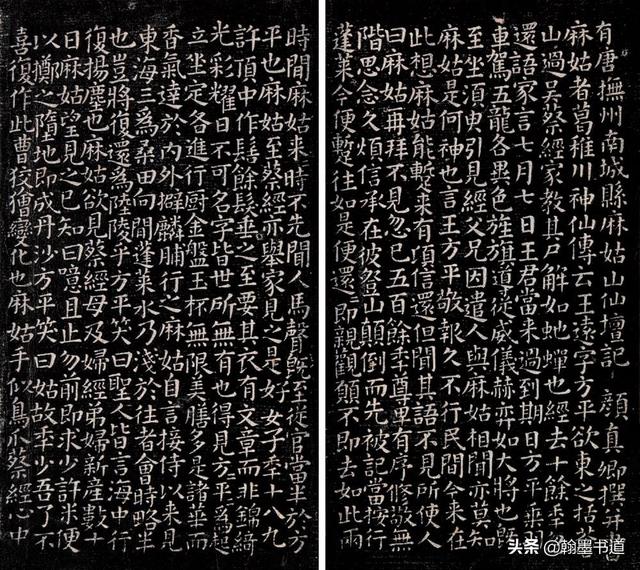 有唐撫州南城縣麻姑山仙壇記 顏真卿撰并書
麻姑者葛稚川神仙傳云王遠字方平欲東之括蒼
山過吳蔡經家教其尸解如虵蟬也經去十餘年忽
還語家言七月七日王君當來過到期日方平乘羽
車駕五龍各異色旌旗導從威儀赫弈如大將也既
至坐須臾引見經父兄因遣人與麻姑相聞亦莫知
麻姑是何神也言王方平敬報久不行民間今來在
此想麻姑能暫來有頃信還但聞其語不見所使人
曰麻姑再拜不見忽已五百餘年尊卑有序修敬無
階思念久煩信承在彼登山顛倒而先被記當按行
蓬萊今便暫往如是便還即親觀願不即去如此兩
時間麻姑來時不先聞人馬聲既至從官當半於方
平也麻姑至蔡經亦舉家見之是好女子年十八九
許頂中作髻餘髮垂之至要其衣有文章而非錦綺
光彩耀日不可名字皆世所無有也得見方平為起
立坐定各進行廚金盤玉杯無限美膳多是諸華而
香氣達於內外擗麟脯行之麻姑自言接侍以來見
東海三為桑田向間蓬萊水乃淺於往者會時略半
也豈將復還為陸陵乎方平笑曰聖人皆言海中行
復揚塵也麻姑欲見蔡經母及婦經弟婦新產數十
日麻姑望見之已知曰噫且止勿前即求少許米便
以擲之墮地即成丹沙方平笑曰姑故年少吾了不
喜復作此曹狡獪變化也麻姑手似鳥爪蔡經心中
头条 @翰墨书道